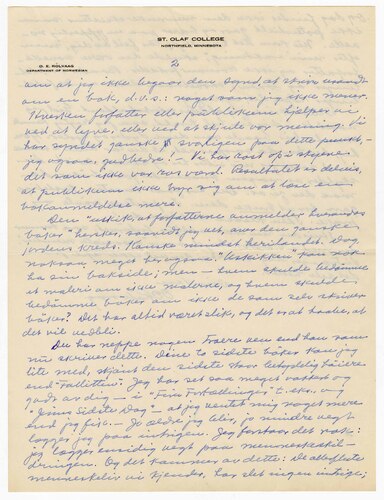 ST. OLAF COLLEGE
NORTHFIELD, MINNESOTA
O. E. ROLVAAG
DEPARTMENT OF NORWEGIAN
2
om at jeg ikke begaar den synd, at skrive usandt
om en bok, d.v.s.: noget som jeg ikke mener.
Hverken forfatter eller publikum hjælper vi
ved at lyve, eller ved at skjule vor mening. Vi
har syndet ganske svarligen paa dette punkt,—
jeg ogsaa, gudbedre!— Vi har rost op i skyene
det som ikke var ros værd. Resultatet er delvis,
at publikum ikke bryr sig om at læse en
bokanmeldelse mere.
Den "uskik, at forfatterne anmelder hverandres
bøker" hersker, saavidt jeg vet, over den ganske
jordens kreds. Kanske mindst her i landet. Dog
nok saa meget her ogsaa. "Uskikken" kan nok
ha sin bakside; men — hvem skulde bedømme
et maleri om ikke malerne, og hvem skulde
bedømme bøker om ikke de som selv skriver
bøker? Det har altid været slik, og det er at haabe, at
det vil vedbli.
Du har neppe nogen Freere ven end han som
nu skriver dette. Dine to sidste bøker kan jeg
lite med, skjønt den sidste staar betydelig høiere
end "Fallitten". Jeg har set saa meget vakkert og
godt av dig — i "Fire Fortællinger" t. eks. og
"Jonas Sidste Dag" — at jeg ventet mig noget mere
end jeg fik. — Jo ældre jeg blir, jo mindre vegt
lægger jeg paa intrigen. Jeg forstaar det nok:
jeg lægger ensidig vegt paa menneskeskil-
dringen. Og det kommer av dette: De allerfleste
menneskeliv vi kjender, har slet ingen intrige;